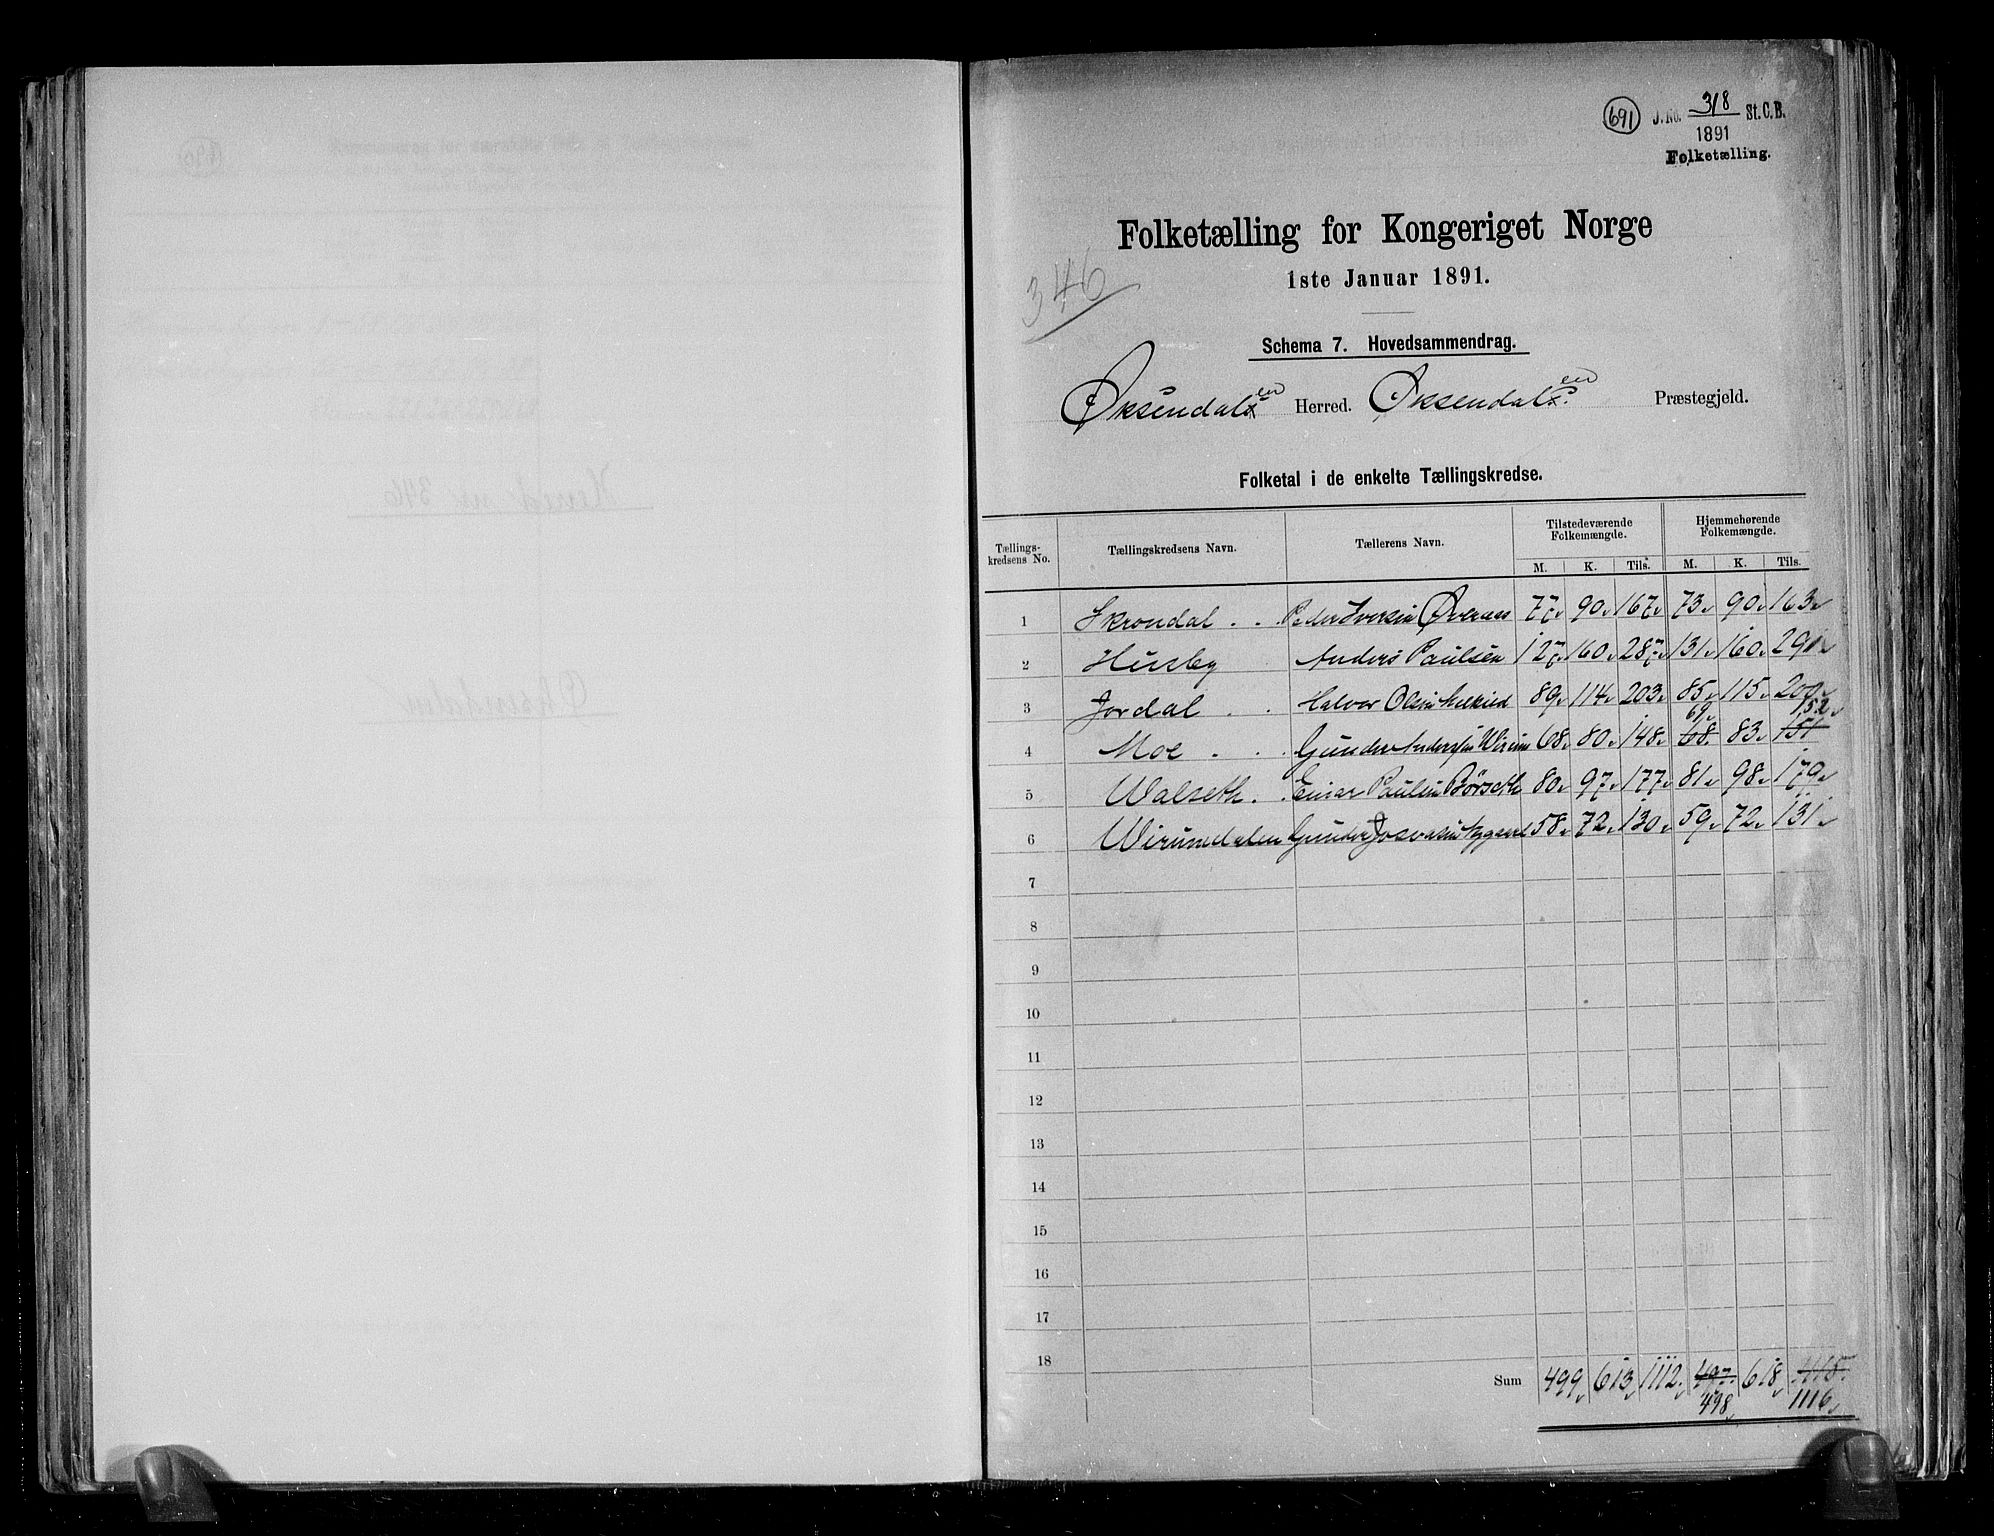 691 J. No. 318 St. C. B.
1891
Folketælling.
Folketælling for Kongeriget Norge
346
1ste Januar 1891.
Schema 7. Hovedsammendrag.
Øksendalen Herred. Øksendalen Præstegjeld.
Folketal i de enkelte Tællingskredse.
Tællings-kredsens No. Tællingskredsens Navn. Tællerens Navn. Tilstedeværende Folkemængde. Hjemmehørende Folkemængde.
M. K. Tils. M. K. Tils.
1 Skrondal . . Peder Iversen Øveraas 77 90 167 73 90 163
2 Husby Anders Paulsen 127 160 287 131 160 291
3 Jordal . . Halvor Olsen 89 114 203 85 115 200
69 152
4 Moe . . Gunder Andersen 68 80 148 68 83 151
5 Walseth . . Einar Paulsen Børseth 80 97 177 81 98 179
6 Wirumdalen Gunder 58 72 130 59 72 131
7
8
9
10
11
12
13
14
15
16
17
18
Sum 499 613 1112 497 618 1115
498 1116